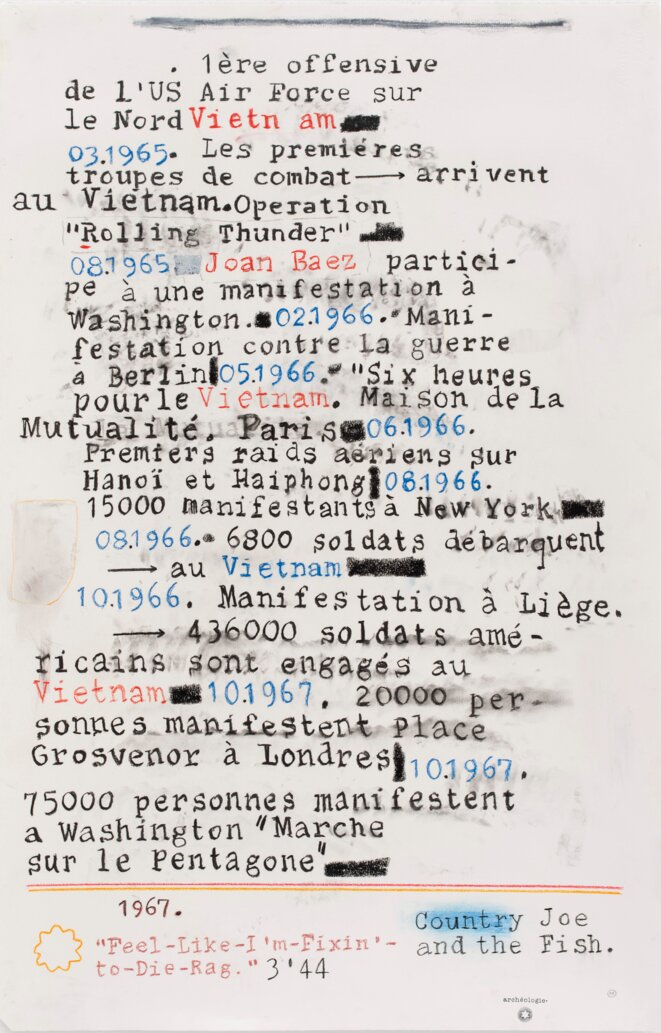 . 1ère offensive
de l'US Air Force sur
le Nord Vietn am
03.1965. Les premiéres
troupes de combat → arrivent
au Vietnam. Operation
"Rolling Thunder"
08.1965 Joan Baez partici-
pe à une manifestation à
Washington. 02.1966. Mani-
festation contre la guerre
à Berlin 05.1966. "Six heures
pour le Vietnam. Maison de la
Mutualité. Paris 06.1966.
Premiers raids aériens sur
Hanoï et Haiphong 08.1966.
15000 manifestants à New York
08.1966. 6800 soldats débarquent
→ au Vietnam
10.1966. Manifestation à Liège.
→ 436000 soldats amé-
ricains sont engagés au
Vietnam 10.1967. 20000 per-
sonnes manifestent Place
Grosvenor à Londres 10.1967.
75000 personnes manifestent
a Washington "Marche
sur le Pentagone"
1967.
"Feel-Like-I'm-Fixin'-
to-Die-Rag." 3'44
Country Joe
and the Fish.
archéologie.